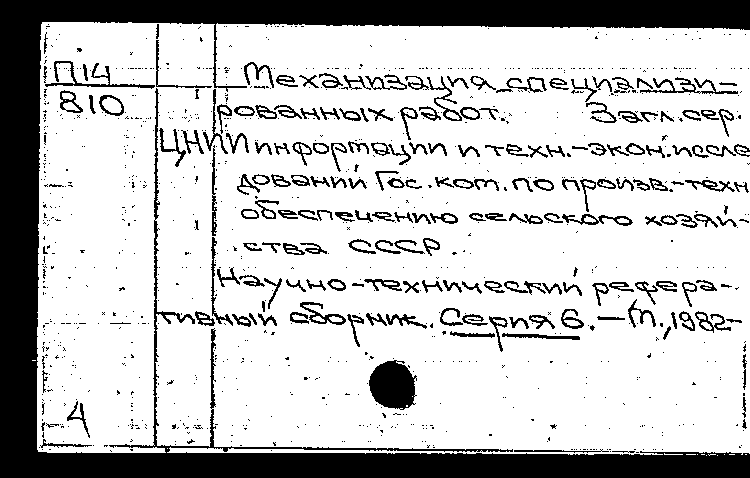 П14 Механизация специализи-
810 рованных работ. Загл.сер.
ЦНИИ информации и техн.-экон.иссле
дований Гос.ком. по произв.-техн
обеспечению сельского хозяй-
ства СССР.
Научно-технический рефера-
тивный сборник. Серия 6. — М., 1982-
4